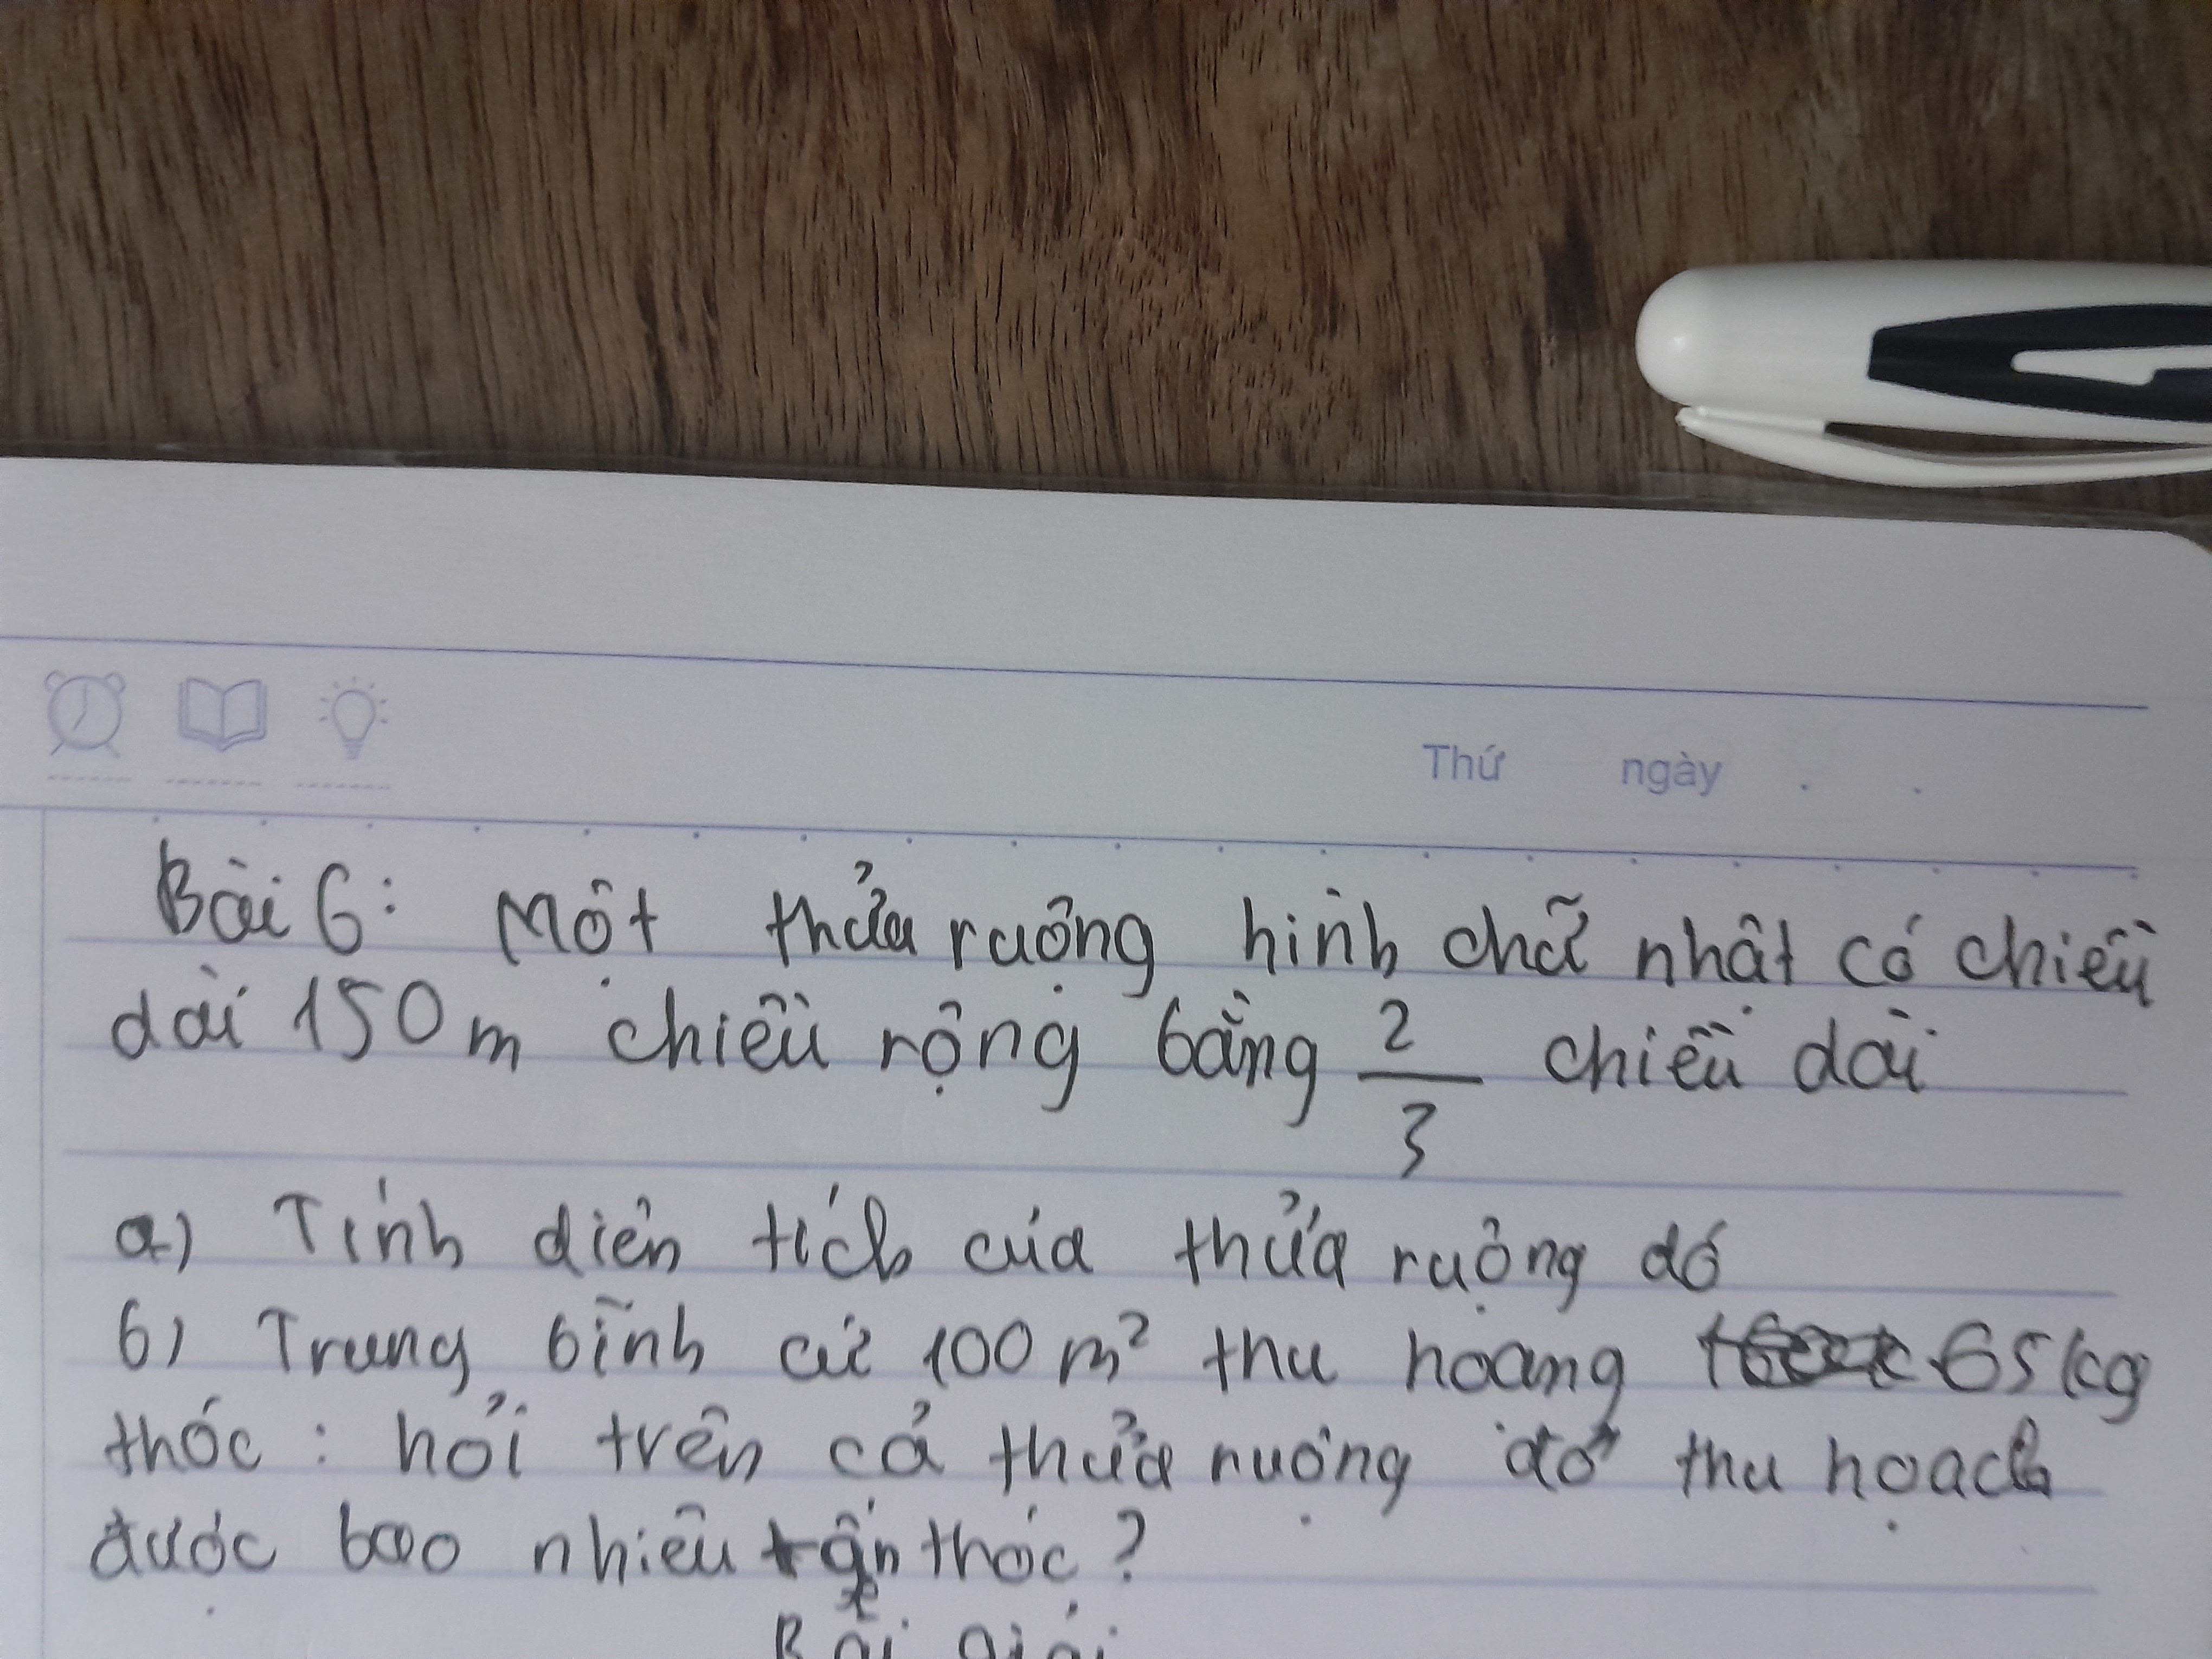 Thứ ngày
Bài 6: Một thửa ruộng hình chữ nhật có chiều
dài 150 m chiều rộng bằng 2/3 chiều dài
a) Tính diện tích của thửa ruộng đó
b) Trung bình cứ 100 m² thu hoạng 65 kg
thóc : hỏi trên cả thửa ruộng đó thu hoạch
được bao nhiêu tấn thóc?
Bài giải